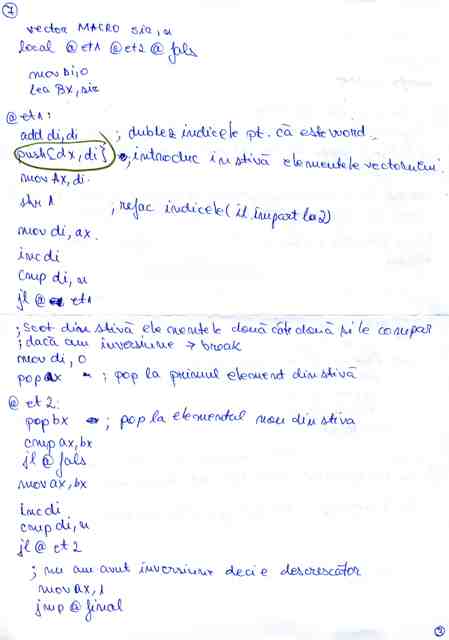 7
vector MACRO sir, n
local @et1 @et2 @fals
mov Di,0
lea Bx, sir
@et1:
add di, di ; dublez indicele pt. că este word
push [dx, di] ; introduc în stivă elementele vectorului
mov Ax, di
shr 1 ; refac indicele (îl împart la 2)
mov di, ax
inc di
cmp di, n
jl @et1
; scot din stivă elementele două câte două și le compar
; dacă am inversiune → break
mov di, 0
pop ax ; pop la primul element din stivă
@et2:
pop bx ; pop la elementul nou din stiva
cmp ax, bx
jl @fals
mov ax, bx
inc di
cmp di, n
jl @et2
; nu am avut inversiune deci e descrescător
mov ax, 1
jmp @final